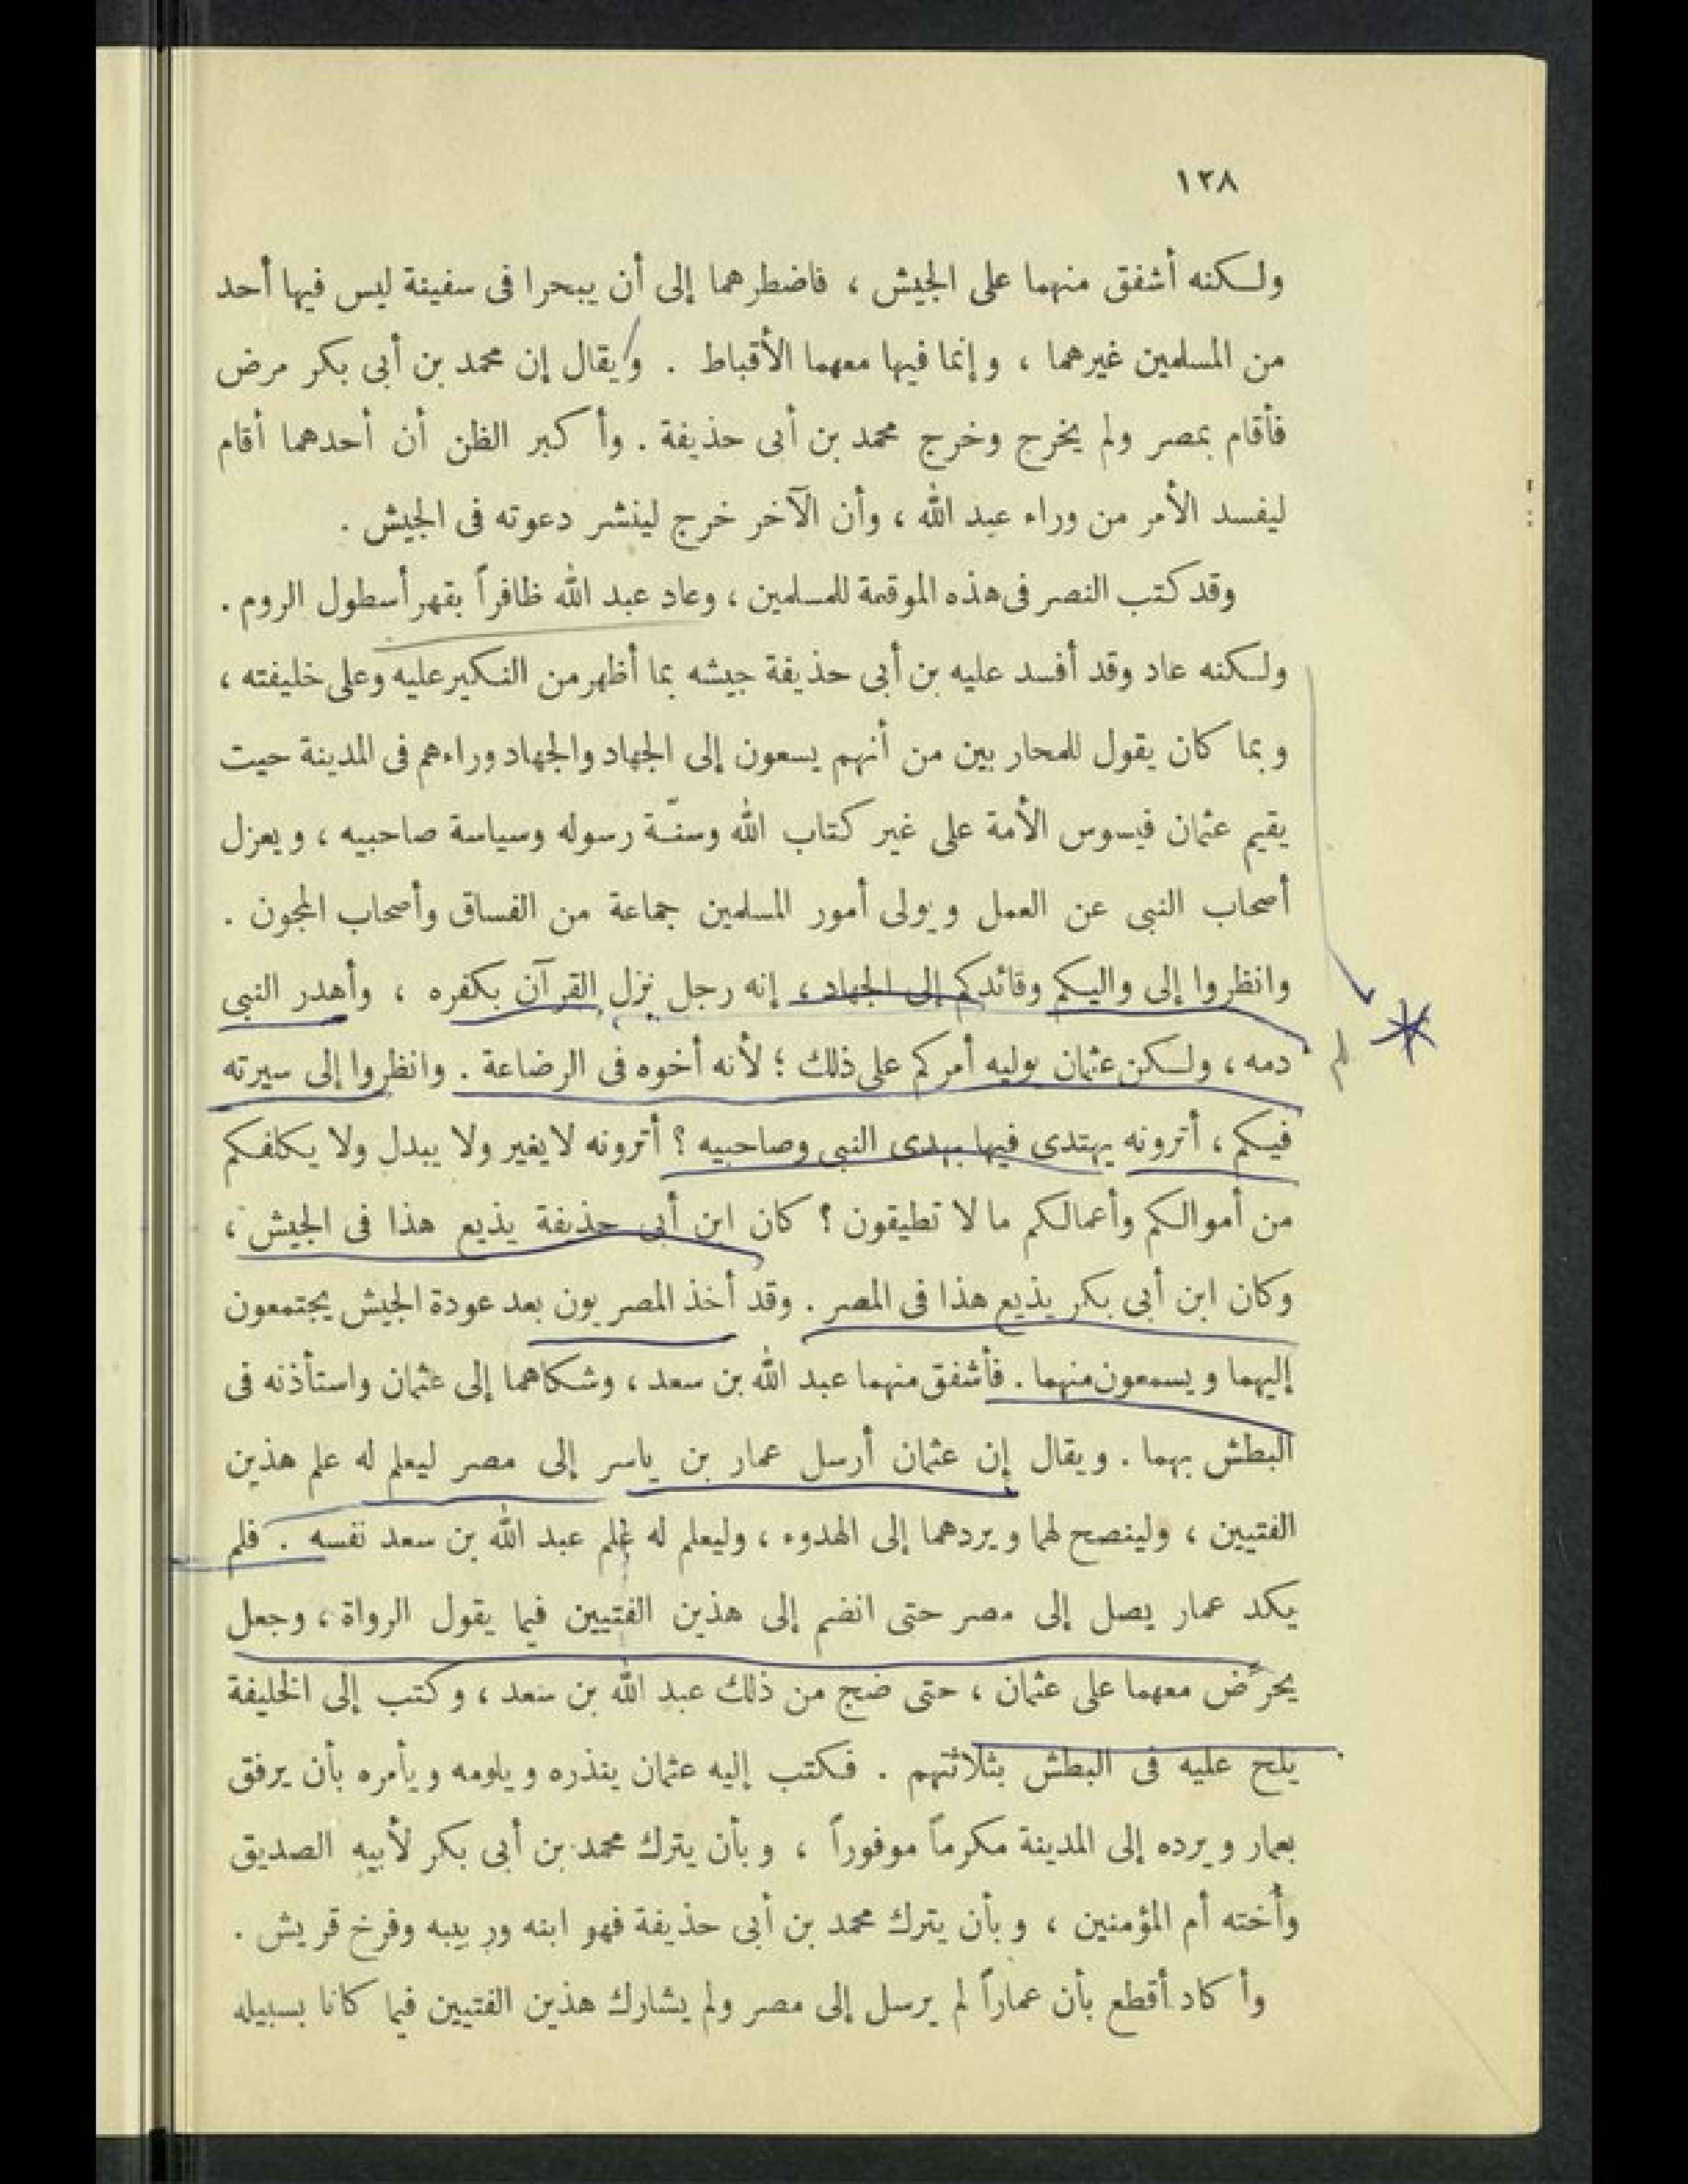 ١٣٨
ولكنه أشفق منهما على الجيش ، فاضطرهما إلى أن يبحرا فى سفينة ليس فيها أحد
من المسلمين غيرهما ، وإنما فيها معهما الأقباط . ويقال إن محمد بن أبى بكر مرض
فأقام بمصر ولم يخرج وخرج محمد بن أبى حذيفة . وأكبر الظن أن أحدهما أقام
ليفسد الأمر من وراء عبد الله ، وأن الآخر خرج لينشر دعوته فى الجيش .
وقد كتب النصر فى هذه الموقعة للمسلمين ، وعاد عبد الله ظافراً بقهر أسطول الروم .
ولكنه عاد وقد أفسد عليه بن أبى حذيفة جيشه بما أظهر من النكير عليه وعلى خليفته ،
وبما كان يقول للمحاربين من أنهم يسعون إلى الجهاد والجهاد وراءهم فى المدينة حيت
يقيم عثمان فيسوس الأمة على غير كتاب الله وسنّة رسوله وسياسة صاحبيه ، ويعزل
أصحاب النبى عن العمل ويولى أمور المسلمين جماعة من الفساق وأصحاب المجون .
وانظروا إلى واليكم وقائدكم إلى الجهاد ، إنه رجل نزل القرآن بكفره ، وأهدر النبى
دمه ، ولكن عثمان يوليه أمركم على ذلك ؛ لأنه أخوه فى الرضاعة . وانظروا إلى سيرته
فيكم ، أترونه يهتدى فيها بهدى النبى وصاحبيه ؟ أترونه لا يغير ولا يبدل ولا يكلفكم
من أموالكم وأعمالكم ما لا تطيقون ؟ كان ابن أبى حذيفة يذيع هذا فى الجيش ،
وكان ابن أبى بكر يذيع هذا فى المصر . وقد أخذ المصريون بعد عودة الجيش يجتمعون
إليهما ويسمعون منهما . فأشفق منهما عبد الله بن سعد ، وشكاهما إلى عثمان واستأذنه فى
البطش بهما . ويقال إن عثمان أرسل عمار بن ياسر إلى مصر ليعلم له علم هذين
الفتيين ، ولينصح لهما ويردهما إلى الهدوء ، وليعلم له علم عبد الله بن سعد نفسه . فلم
يكد عمار يصل إلى مصر حتى انضم إلى هذين الفتيين فيما يقول الرواة ، وجعل
يحرّض معهما على عثمان ، حتى ضج من ذلك عبد الله بن سعد ، وكتب إلى الخليفة
يلح عليه فى البطش بثلاثتهم . فكتب إليه عثمان ينذره ويلومه ويأمره بأن يرفق
بعمار ويرده إلى المدينة مكرماً موفوراً ، وبأن يترك محمد بن أبى بكر لأبيه الصديق
وأخته أم المؤمنين ، وبأن يترك محمد بن أبى حذيفة فهو ابنه وربيبه وفرخ قريش .
وأكاد أقطع بأن عماراً لم يرسل إلى مصر ولم يشارك هذين الفتيين فيما كانا بسبيله